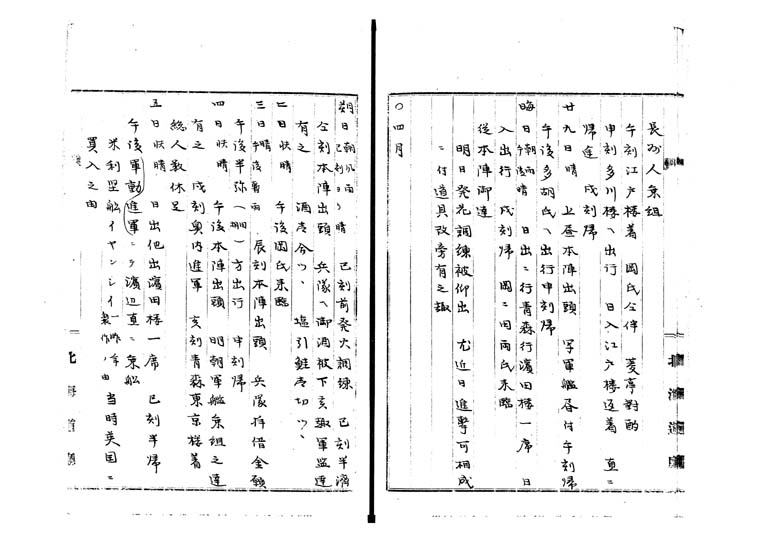 長州人乗組
午刻江戸楼着 岡氏仝伴 菱亭対酌
申刻多川楼ヘ出行 日入江戸楼逗着 直ニ
帰途 戌刻帰
廿九日晴 上昼本陣出頭 軍艦昼付午刻帰
午後多胡氏ヘ出行申刻帰
晦日朝雨晴 日出ニ行青森行濱田楼一席 日
入出行 戌刻帰 岡ニ田両氏来臨
従本陣御達
明日発光調練被仰出 尤近日進撃可相成
ニ付道具改旁有之趣
○四月
朔日 晴 巳刻前発火調練 巳刻半済
仝刻本陣出頭 兵隊ヘ御酒被下
有之 酒壱合ツヽ 塩引鮭壱切ツヽ
二日快晴 午後岡氏来臨
三日晴 午後暮雨 辰刻本陣出頭 兵隊拝借金願
午後半弥 方出行 申刻帰
四日快晴 午後本陣出頭 明朝軍艦乗組之達
有之 戌刻奥内進軍 亥刻青森東京楼着
総人数休足
五日快晴 日出他出濱田楼一席 巳刻半帰
午後軍勤(進軍)ニテ濱辺直ニ乗船
米利堅船イヤンシイ 製作ノ由 当時英国ニ
買入之由
北海道
北海道